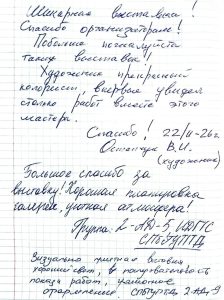 Шикарная выставка!
Спасибо организаторам!
Побольше пожалуйста
таких выставок!!
Художник прекрасный
колорист, впервые увидел
столько работ вместе этого
мастера.
Спасибо! 22/II-26г.
В.И.
(художник)
Большое спасибо за
выставку! Хорошая планировка
галереи, уютная атмосфера!
Группа 2-АД-5
СПбГУПТД
Визуально приятная вставка
хороший свет,
показа работ, уютное
оформление СПбГУПТД 2-АД-5